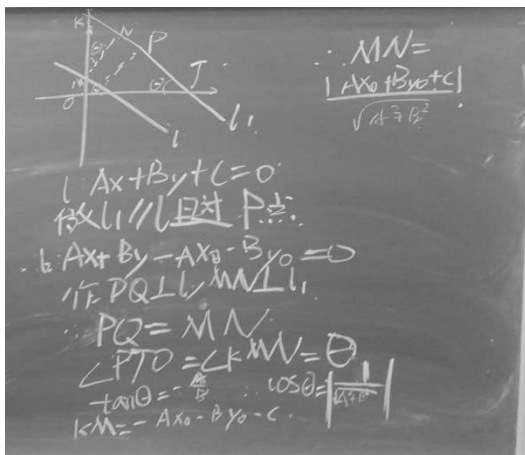 K
N
P
θ
M
θ
T
O
l
l₁
∴ MN=
|Ax₀+By₀+C|
√A²+B²
l: Ax+By+C=0
l₁//l且对P点
Ax+By-Ax₀-By₀=0
作PQ⊥l, MN⊥l₁
∴ PQ=MN
∠PTO=∠KMN=θ
tanθ=-A/B ∴ cosθ=|1/√A²+B²|
KM=-Ax₀-By₀-C